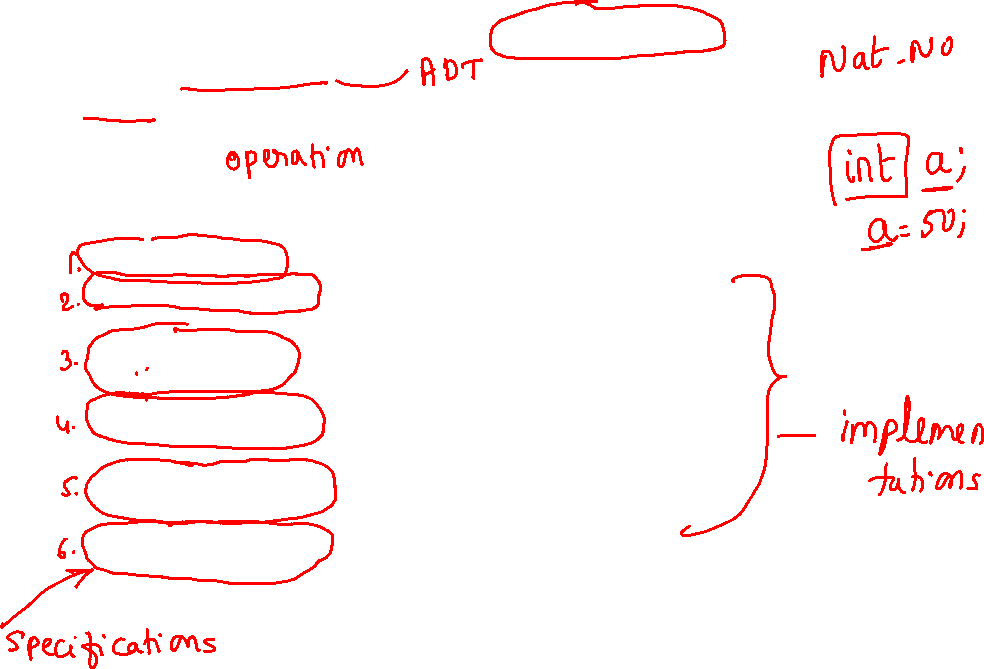 ADT
Nat-No
operation
int a;
a=50;
1.
2.
3.
4.
5.
6.
implemen
tations
Specifications